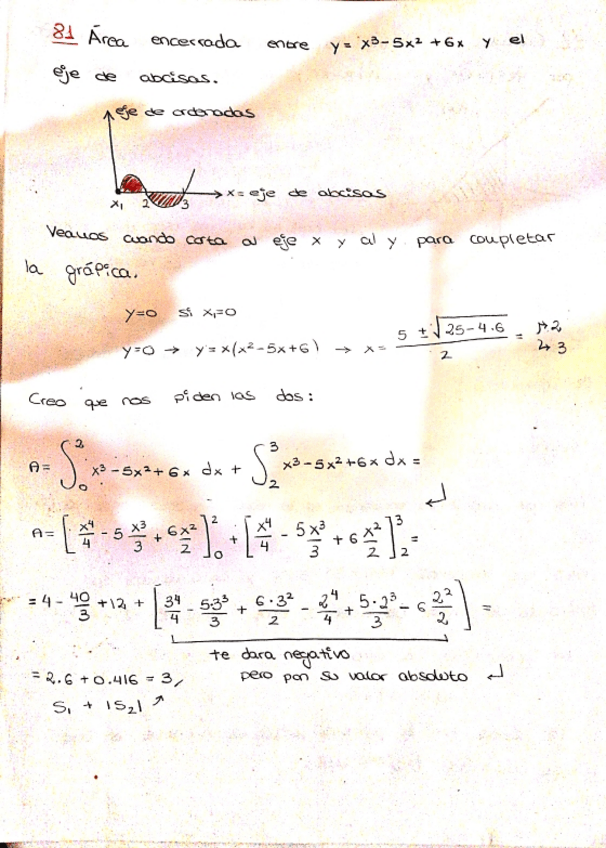 81 Área encerrada entre y = x³-5x²+6x y el
eje de abcisas.
eje de ordenadas
x = eje de abcisas
x₁ 2 3
Veamos cuando corta al eje x y al y para completar
la gráfica.
y=0 si x₁=0
y=0 → y = x(x²-5x+6) → x = (5 ± √(25-4·6))/2 = ↱ 2 ↳ 3
Creo que nos piden las dos:
A = ∫₀² x³-5x²+6x dx + ∫₂³ x³-5x²+6x dx =
A = [x⁴/4 - 5 x³/3 + 6x²/2]₀² + [x⁴/4 - 5x³/3 + 6 x²/2]₂³ =
= 4 - 40/3 + 12 + [3⁴/4 - 5·3³/3 + 6·3²/2 - 2⁴/4 + 5·2³/3 - 6 2²/2] =
te dara negativo
pero pon su valor absoluto
= 2.6 + 0.416 = 3,
S₁ + |S₂|